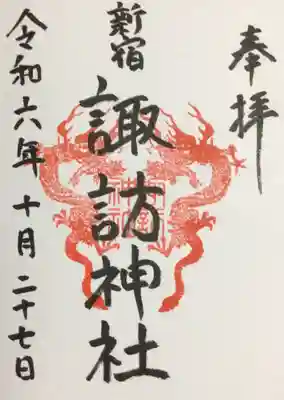 奉拝
新宿
諏訪神社
令和六年十月二十七日